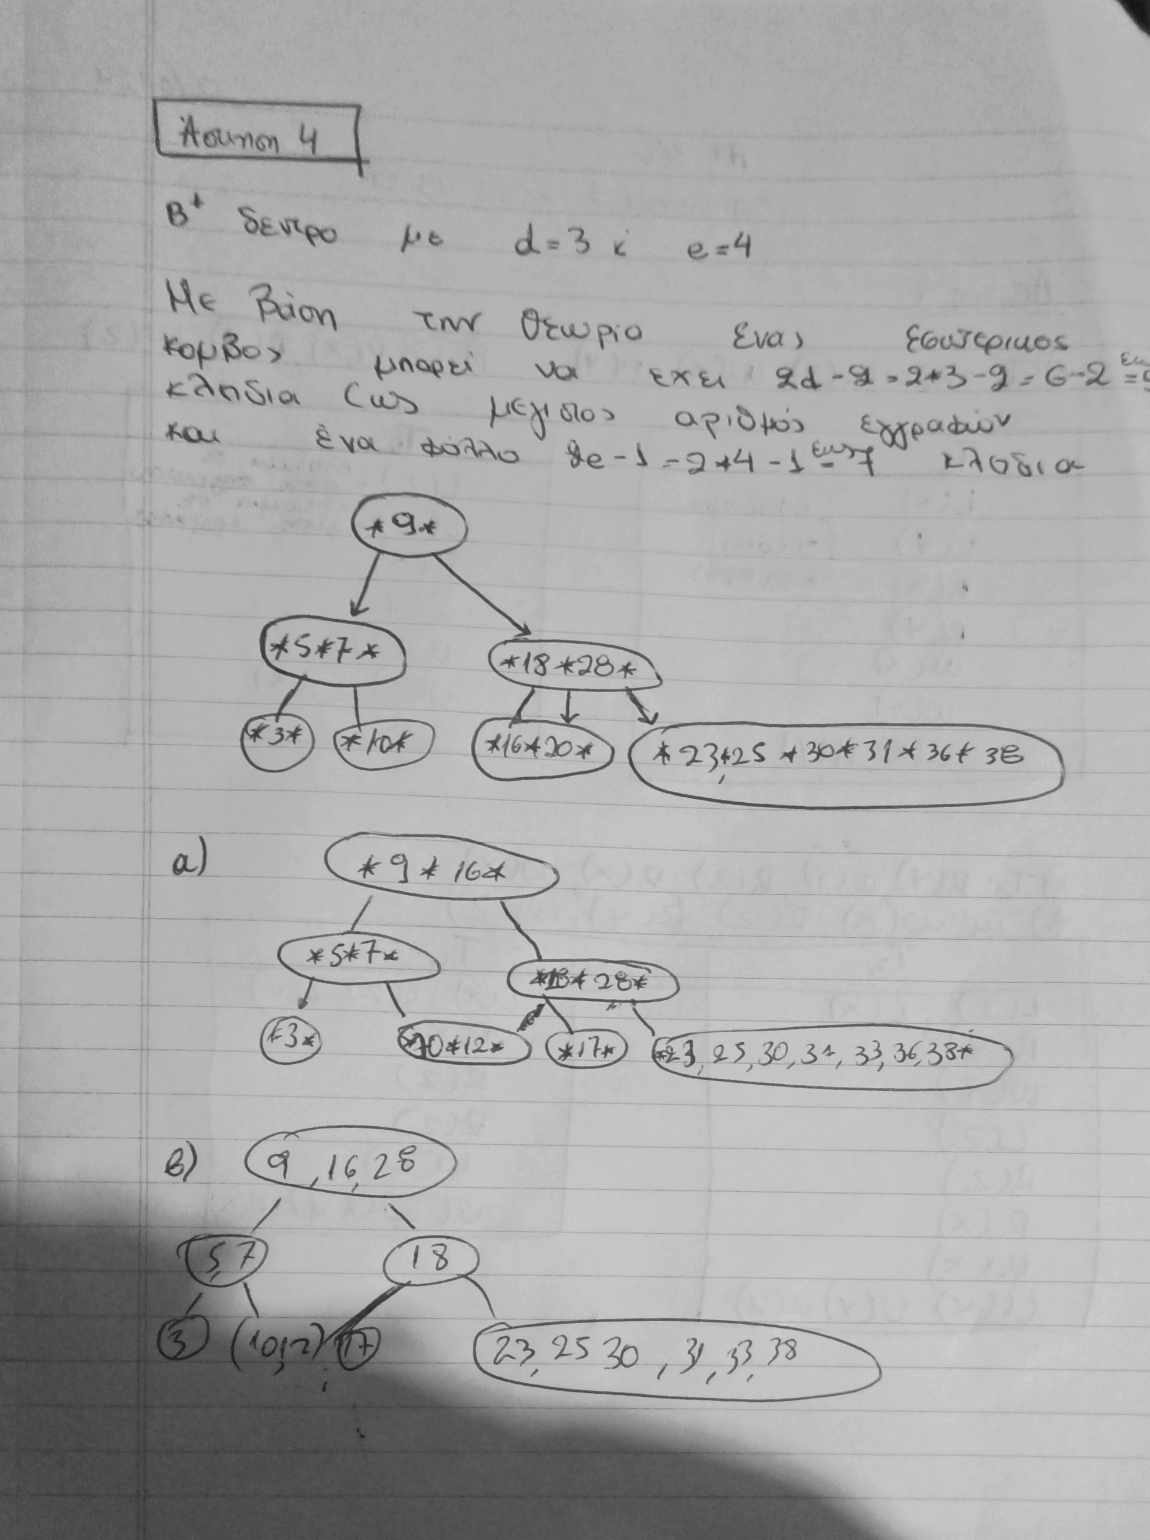 Άσκηση 4
B+ δεντρο με d=3 κ e=4
Με βάση την θεωρια ενας εσωτερικος
κομβος μπορεί να εχει 2d-2=2*3-2=6-2=
κλαδια (ως μεγιστος αριθμός εγγραφών
και ένα φύλλο 2e-1=2*4-1=7 κλαδια
*9*
*5*7* *18*28*
*3* *10* *16*20* *23,*25*30*31*36*38
α) *9*16*
*5*7* *18*28*
*3* *10*12* *17* *23,25,30,31,33,36,38*
β) 9,16,28
5,7 18
3 (10,12) 17 23,25 30,31,33,38